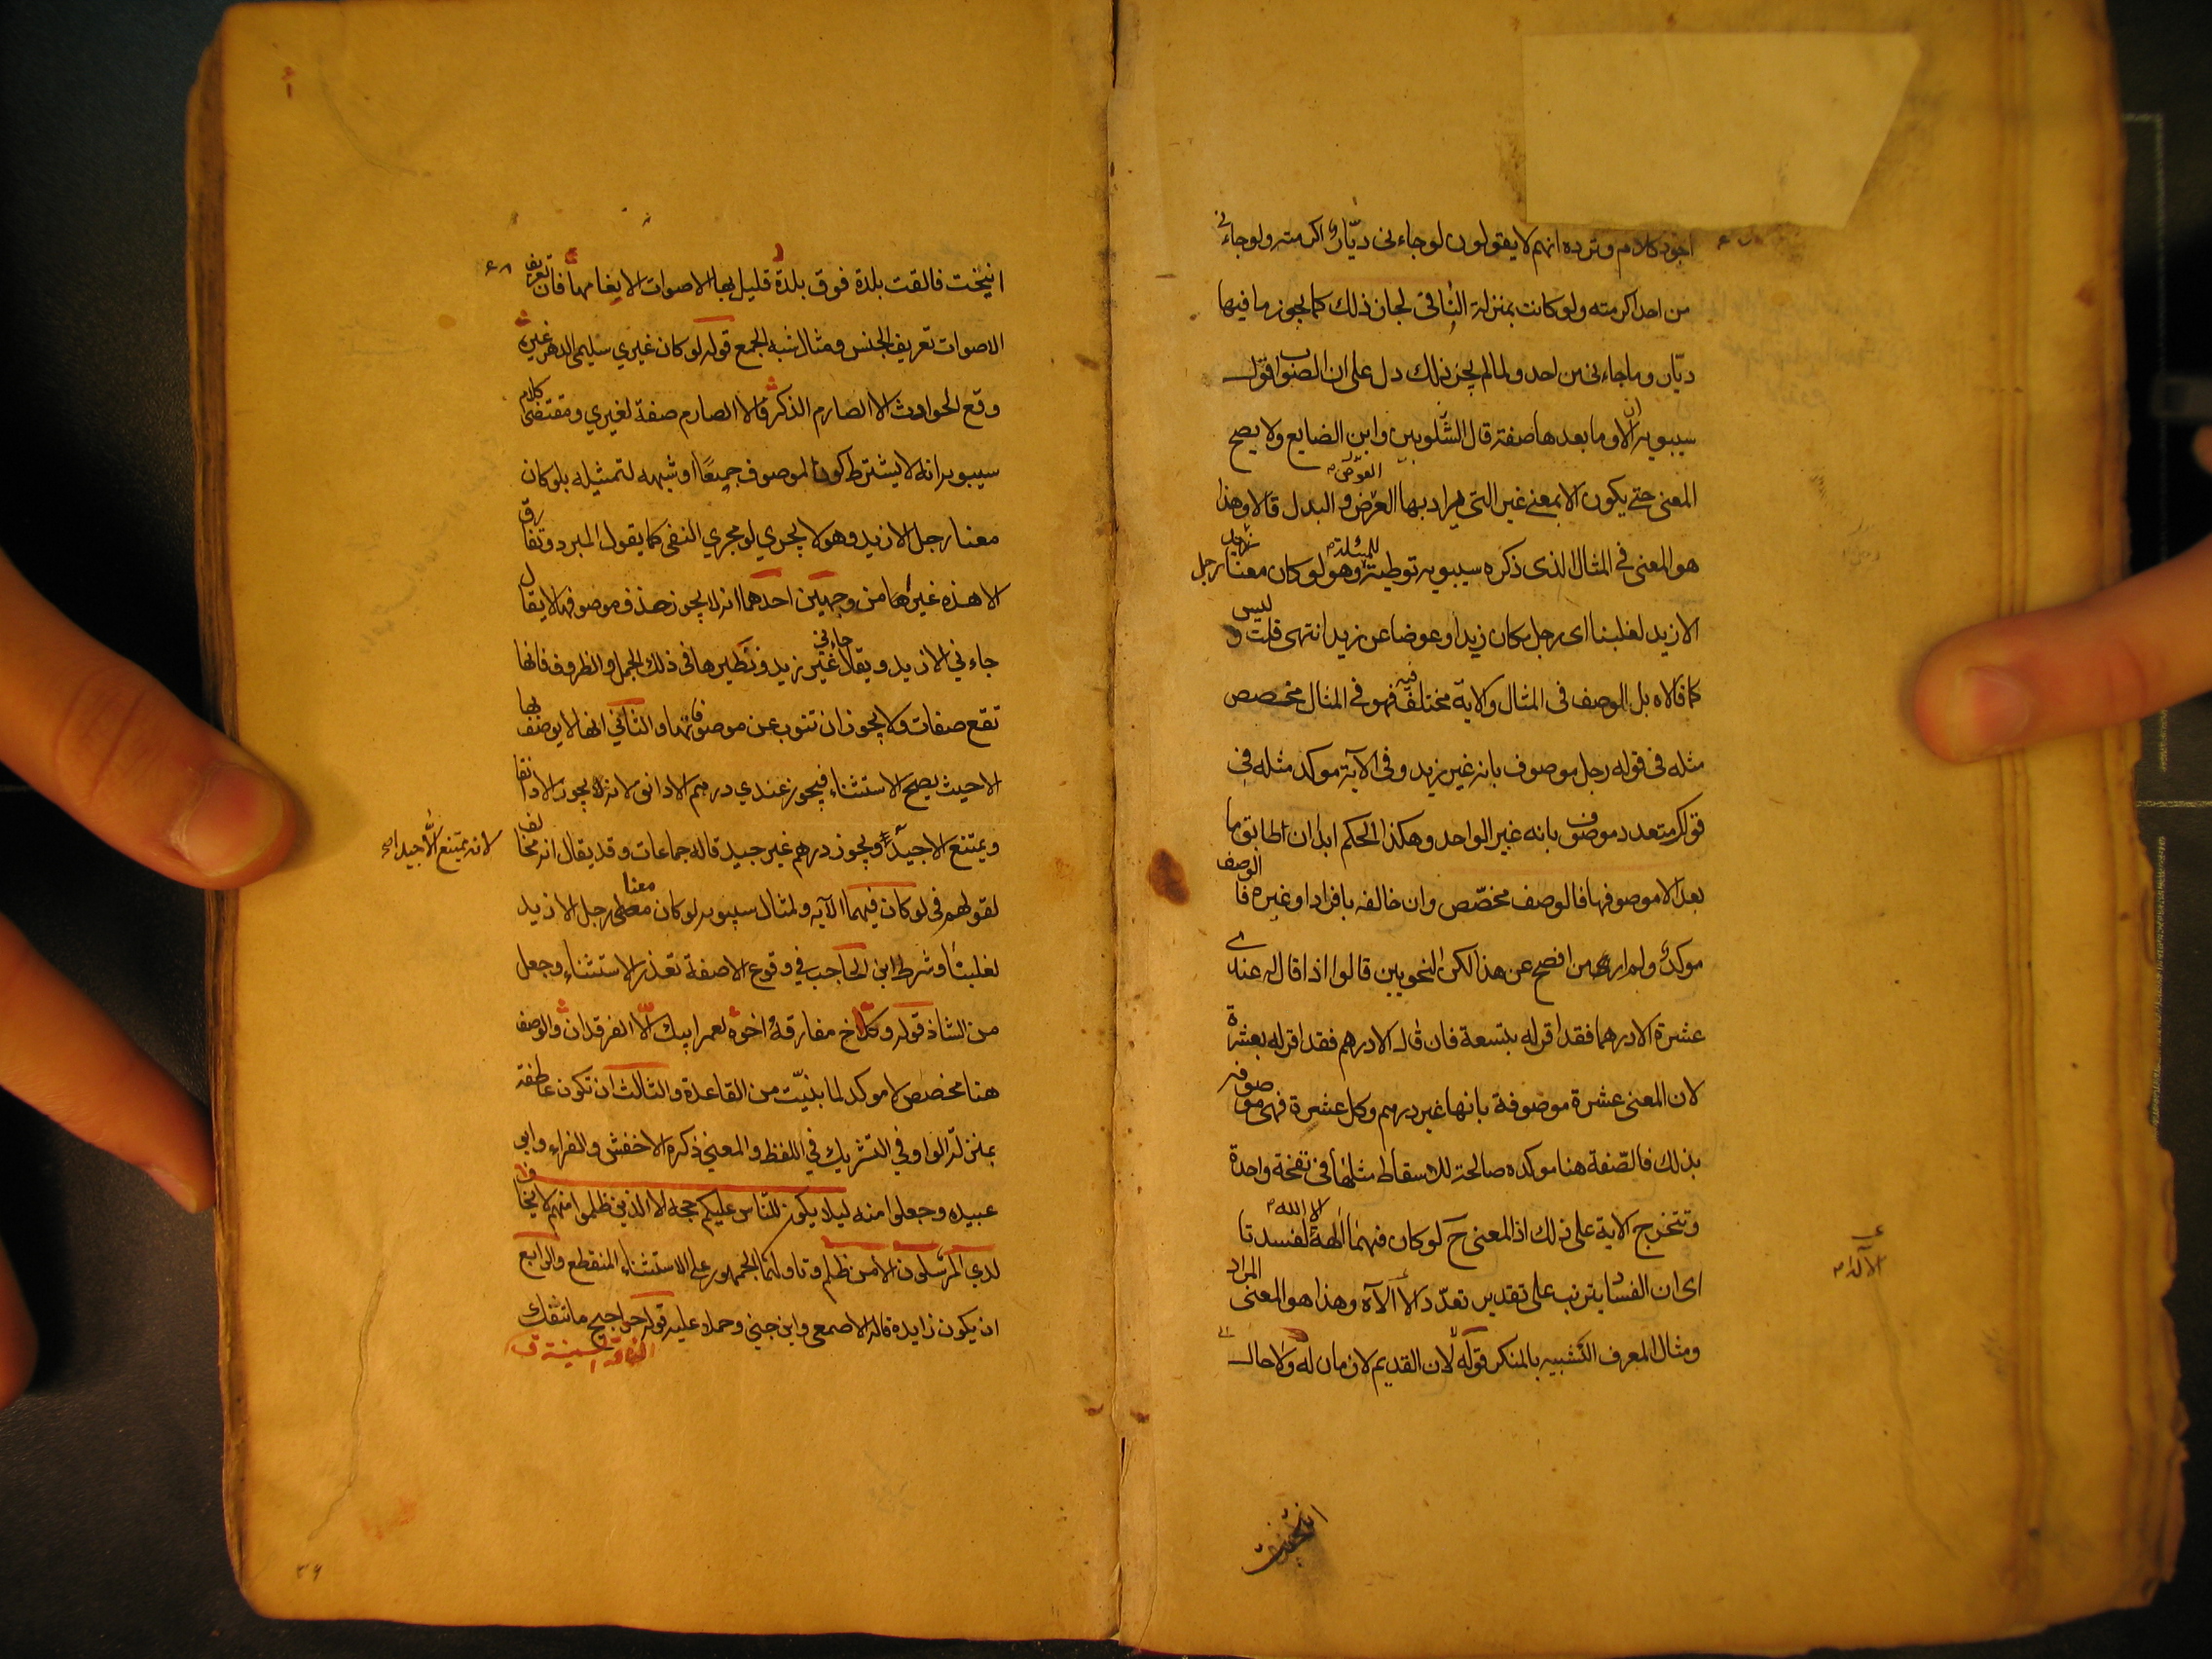 اجود كلام ويرده انهم لا يقولون لو جاءنى ديّار اكرمته ولو جاءنى
من احد اكرمته ولو كانت بمنزلة النافى لجاز ذلك كما يجوز ما فيها
ديّار وما جاءنى من احد ولما لم يجز ذلك دل على ان الصواب قول
سيبويه ان الا وما بعدها صفة قال الشّلوبين وابن الضايع ولا يصح
المعنى حتى يكون الا بمعنى غير التى يراد بها العوض والبدل قالا وهذا
هو المعنى فى المثال الذى ذكره سيبويه توطية للمسئلة وهو لو كان معنا رجل
الا زيد لغلبنا اى رجل مكان زيد او عوضا عن زيد انتهى قلت وليس
كما قالاه بل الوصف فى المثال والاية مختلف فيه فهو فى المثال مخصص
مثله فى قوله رجل موصوف بانه غير زيد وفى الآية موكد مثله فى
قولكر متعدد موصوف بانه غير الواحد وهكذا الحكم ابدا ان طابق ما
بعد الا موصوفها فالوصف مخصّص وان خالفه بافراد او غيره فالوصف
موكد ولم ار من افصح عن هذا لكن النحويين قالوا اذا قال له عندى
عشرة الا درهما فقد اقر له بتسعة فان قال الا درهم فقد اقر له بعشرة
لان المعنى عشرة موصوفة بانها غير درهم وكل عشرة فهى موصوفة
بذلك فالصّفة هنا موكده صالحة للاسقاط مثلها فى نفخة واحدة
وتتخرج الاية على ذلك اذ المعنى ح لو كان فيهما الهة الا الله لفسدتا
اى ان الفساد يترتب على تقدير تعدّد الآلهة وهذا هو المعنى المراد
ومثال المعرف الشبيه بالمنكر قوله
انيخت
انيخت فالقت بلدة فوق بلدة قليل بها الاصوات الا بغامها فان تعريف
الاصوات تعريف الجنس ومثال شبه الجمع قوله لو كان غيري سليمى الدهر غيره
وقع الحوادث الا الصارم الذكر فالا الصارم صفة لغيري ومقتضى كلام
سيبويه انه لا يشترط كون الموصوف جمعًا او شبهه لتمثيله بلو كان
معنا رجل الا زيد وهو لا يجري لو مجري النفى كما يقول المبرد وتفارق
الا هذه غير ها من وجهين احدهما انه لا يجوز حذف موصوفها لا يقال
جاءني الا زيد ويقال جاءني غير زيد ونظيرها فى ذلك الجمل والظروف فانها
تقع صفات ولا يجوز ان تنوب عن موصوفاتها والثاني انها لا يوصف بها
الا حيث يصح الاستثناء فيجوز عندي درهم الا دانق لانه يجوز الا دانقا
ويمتنع الا جيد ويجوز درهم غير جيد قاله جماعات وقد يقال انه مخالف
لانه يمتنع الا جيدا صح
لقولهم فى لو كان فيهما الآيه ولمثال سيبويه لو كان معنا رجل الا زيد
لغلبنا وشرط ابن الحاجب في وقوع الا صفة تعذر الاستثناء وجعل
من الشاذ قوله وكل اخ مفارقه اخوه لعمر ابيك الّا الفرقدان والوصف
هنا مخصص لا موكد لما بنيّت من القاعدة والثالث ان تكون عاطفة
بمنزلة الواو في التشريك في اللفظ والمعني ذكره الاخفش والفراء وابو
عبيده وجعلوا منه ليلا يكون للناس عليكم حجه الا الذين ظلموا منهم لا يخاف
لدي المرسلون الا من ظلم وتاولهما الجمهور على الاستثناء المنقطع والرابع
ان يكون زايده قاله الاصمعى وابن جني وحملا عليه قوله حراجيج ما تنفك
الناقة السمينة ق
٣٩